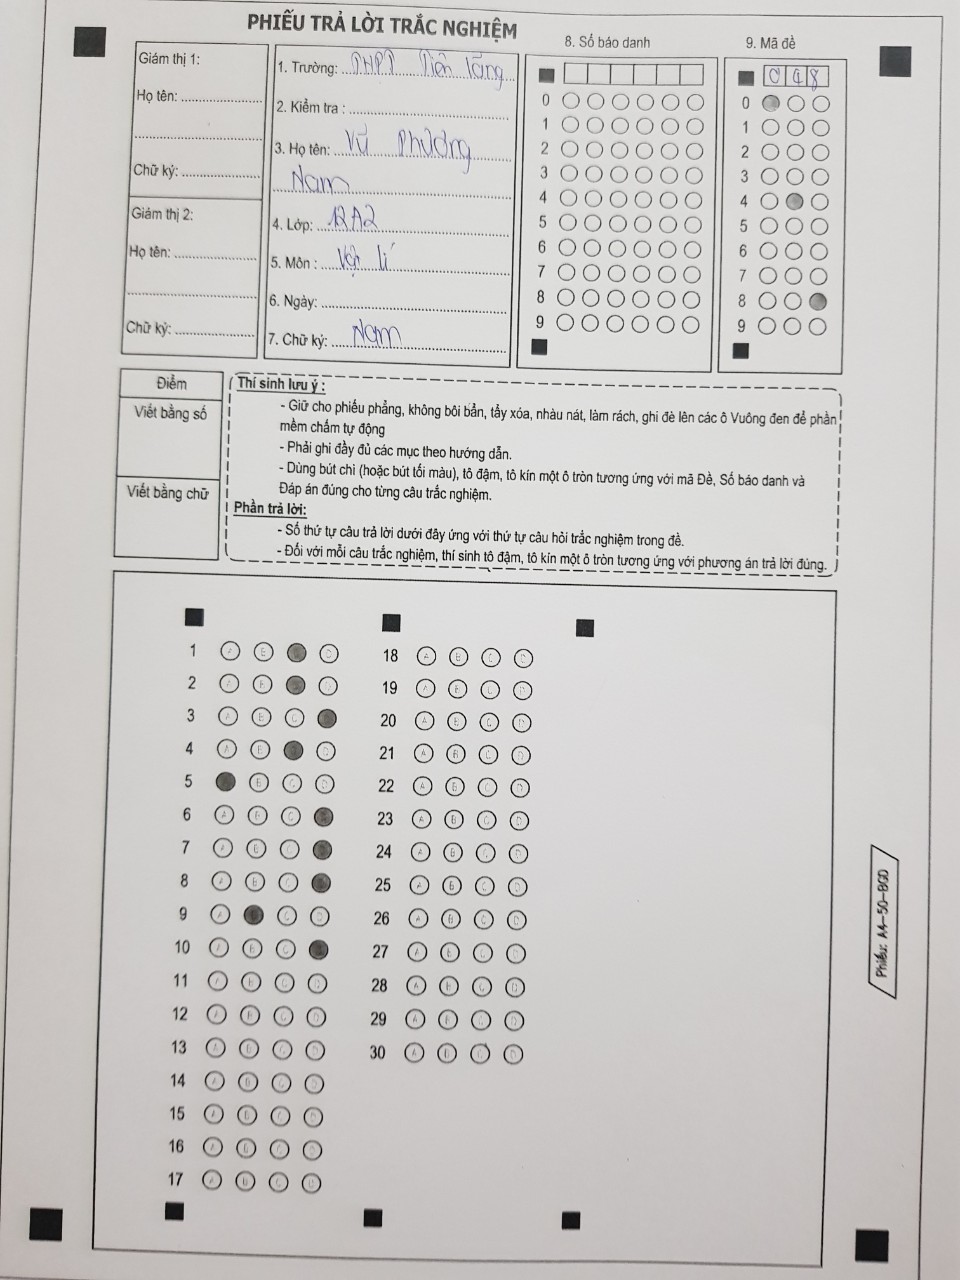 PHIẾU TRẢ LỜI TRẮC NGHIỆM
Giám thị 1:
Họ tên:
Chữ ký:
Giám thị 2:
Họ tên:
Chữ ký:
1. Trường: THPT Tiên Lãng
2. Kiểm tra :
3. Họ tên: Vũ Phương
Nam
4. Lớp: 12A2
5. Môn : Vật lí
6. Ngày:
7. Chữ ký: Nam
8. Số báo danh
0
1
2
3
4
5
6
7
8
9
9. Mã đề
0 4 8
0
1
2
3
4
5
6
7
8
9
Điểm
Viết bằng số
Viết bằng chữ
Thí sinh lưu ý :
- Giữ cho phiếu phẳng, không bôi bẩn, tẩy xóa, nhàu nát, làm rách, ghi đè lên các ô Vuông đen để phần
mềm chấm tự động
- Phải ghi đầy đủ các mục theo hướng dẫn.
- Dùng bút chì (hoặc bút tối màu), tô đậm, tô kín một ô tròn tương ứng với mã Đề, Số báo danh và
Đáp án đúng cho từng câu trắc nghiệm.
Phần trả lời:
- Số thứ tự câu trả lời dưới đây ứng với thứ tự câu hỏi trắc nghiệm trong đề.
- Đối với mỗi câu trắc nghiệm, thí sinh tô đậm, tô kín một ô tròn tương ứng với phương án trả lời đúng.
1 A B D
2 A B D
3 A B C
4 A B D
5 B C D
6 A B C
7 A B C
8 A B C
9 A C D
10 A B C
11 A B C D
12 A B C D
13 A B C D
14 A B C D
15 A B C D
16 A B C D
17 A B C D
18 A B C D
19 A B C D
20 A B C D
21 A B C D
22 A B C D
23 A B C D
24 A B C D
25 A B C D
26 A B C D
27 A B C D
28 A B C D
29 A B C D
30 A B C D
Phiếu: A4-50-BGD